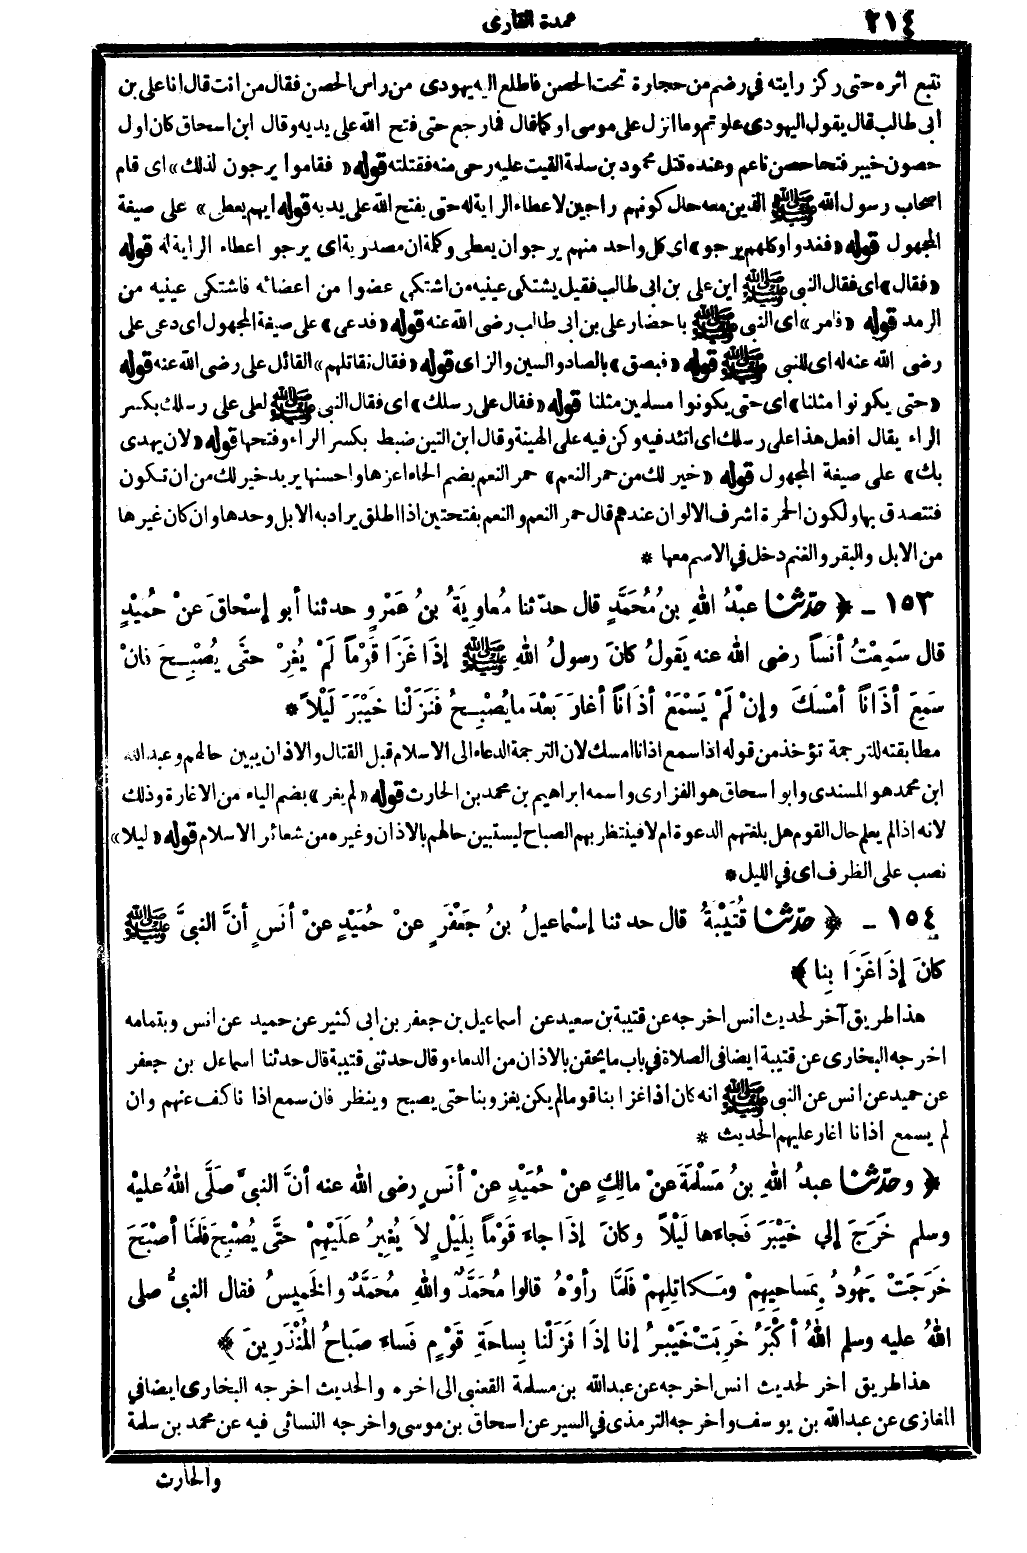 ٢١٤
عمدة القارى
نتبع اثره حتى ركز رايته في رضم من حجارة تحت الحصن فاطلع اليه يهودى من راس الحصن فقال من انت قال انا على بن
أبى طالب قال يقول اليهودى علوتم وما انزل على موسى او كما قال فما رجع حتى فتح الله على يديه وقال ابن اسحاق كان اول
حصون خيبر فتحا حصن ناعم وعنده قتل محمود بن سلمة القيت عليه رحى منه فقتلته قوله «فقاموا يرجون لذلك» اى قام
اصحاب رسول الله ﷺ الذين معه حال كونهم راجين لاعطاء الراية له حتى يفتح الله على يديه قوله «ايهم يعطى» على صيغة
المجهول قوله «فغدوا وكلهم يرجو» اى كل واحد منهم يرجو ان يعطى وكلمة ان مصدرية اى يرجو اعطاء الراية له قوله
«فقال» اى فقال النبى ﷺ اين على بن ابى طالب فقيل يشتكى عينيه من اشتكى عضوا من اعضائه فاشتكى عينيه من
الرمد قوله «فامر» اى النبى ﷺ باحضار على بن ابى طالب رضى الله عنه قوله «فدعى» على صيغة المجهول اى دعى على
رضى الله عنه له اى للنبى ﷺ قوله «فبصق» بالصاد والسين والزاى قوله «فقال نقاتلهم» القائل على رضى الله عنه قوله
«حتى يكونوا مثلنا» اى حتى يكونوا مسلمين مثلنا قوله «فقال على رسلك» اى فقال النبى ﷺ لعلى على رسلك بكسر
الراء يقال افعل هذا على رسلك اى اتئد فيه وكن فيه على الهينة وقال ابن التين ضبط بكسر الراء وفتحها قوله «لان يهدى
بك» على صيغة المجهول قوله «خير لك من حمر النعم» حمر النعم بضم الحاء اعزها واحسنها يريد خير لك من ان تكون
فتتصدق بها ولكون الحمرة اشرف الالوان عندهم قال حمر النعم والنعم بفتحتين اذا اطلق يراد به الابل وحدها وان كان غيرها
من الابل والبقر والغنم دخل في الاسم معها *
١٥٣ ـ ﴿ حدّثنا عبْدُ اللهِ بنُ مُحَمَّدٍ قال حدّثنا مُعاوِيَةُ بنُ عَمْرٍو حدثنا أبو إسْحاقَ عنْ حُمَيْدٍ
قال سَمِعْتُ أنَساً رضى الله عنه يَقولُ كانَ رسولُ اللهِ ﷺ إذَا غَزَا قَوْماً لَمْ يُغِرْ حتَّى يُصْبِحَ فانْ
سَمِعَ أذَاناً أمْسَكَ وإنْ لَمْ يَسْمَعْ أذَاناً أغارَ بَعْدَ ما يُصْبِحُ فَنَزَلْنا خَيْبَرَ لَيْلاً *
مطابقته للترجمة تؤخذ من قوله اذا سمع اذانا امسك لان الترجمة الدعاء الى الاسلام قبل القتال والاذان يبين حالهم وعبد الله
ابن محمد هو المسندى وابو اسحاق هو الفزارى واسمه ابراهيم بن محمد بن الحارث قوله «لم يغر» بضم الياء من الاغارة وذلك
لانه اذا لم يعلم حال القوم هل بلغتهم الدعوة ام لا فينتظر بهم الصباح ليستبين حالهم بالاذان وغيره من شعائر الاسلام قوله «ليلا»
نصب على الظرف اى في الليل *
١٥٤ ـ ﴿ حدّثنا قُتَيْبَةُ قال حدثنا إسْماعيلُ بنُ جَعْفَرٍ عنْ حُمَيْدٍ عنْ أنَسٍ أنَّ النبىَّ ﷺ
كانَ إذَا غَزَا بِنا ﴾
هذا طريق آخر لحديث انس اخرجه عن قتيبة بن سعيد عن اسماعيل بن جعفر بن ابى كثير عن حميد عن انس وبتمامه
اخرجه البخارى عن قتيبة ايضا في الصلاة في باب ما يحقن بالاذان من الدماء وقال حدثنى قتيبة قال حدثنا اسماعل بن جعفر
عن حميد عن انس عن النبى ﷺ انه كان اذا غزا بنا قوما لم يكن يغزو بنا حتى يصبح وينظر فان سمع اذانا كف عنهم وان
لم يسمع اذانا اغار عليهم الحديث *
﴿ وحدّثنا عبدُ اللهِ بنُ مَسْلَمَةَ عنْ مالِكٍ عنْ حُمَيْدٍ عنْ أنَسٍ رضى الله عنه أنَّ النبىَّ صَلَّى اللهُ عليْه
وسلم خَرَجَ إلي خَيْبَرَ فَجاءَها لَيْلاً وكانَ إذَا جاءَ قَوْماً بِلَيْلٍ لاَ يُغِيرُ عَلَيْهِمْ حتَّى يُصْبِحَ فَلمَّا أصْبَحَ
خَرَجَتْ يَهُودُ بِمَساحِيهِمْ ومَكاتِلِهِمْ فَلمَّا رأوْهُ قالوا مُحَمَّدٌ واللهِ مُحَمَّدٌ والخَمِيسُ فقال النبىُّ صلى
اللهُ عليه وسلم اللهُ أكْبَرُ خَرِبَتْ خَيْبرُ إنا إذَا نَزَلْنا بِساحَةِ قَوْمٍ فَساءَ صَباحُ المُنْذَرِينَ ﴾
هذا طريق اخر لحديث انس اخرجه عن عبد الله بن مسلمة القعنبى الى اخره والحديث اخرجه البخارى ايضا في
المغازى عن عبد الله بن يوسف واخرجه الترمذى في السير عن اسحاق بن موسى واخرجه النسائى فيه عن محمد بن سلمة
والحارث